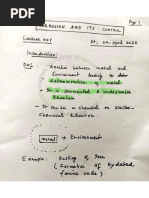 Page 1
CORROSION AND ITS CONTROL
Lecture No 1
Dt. 24-April 2020
Introduction
Def Reaction between metal and
Environment leading to deter
ioration of metal.
- It is unwanted & undesirable
Reaction
It can be a chemical or electro-
chemical Reaction
metal
Environment
Example: Rusting of Iron
(Formation of hydrated
ferric oxide)